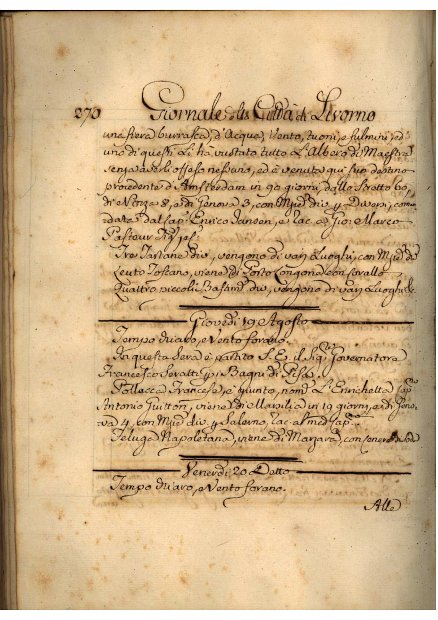 270 Giornale della Città di Livorno
una fiera burrasca d'Acqua, Vento, tuoni, e fulmini, ed
uno di questi Li hà tutto L'Albero di Maestra
senza averli offeso nessuno, ed è venuta quì
procedente d'Amsterdam in 90 giorni, dallo Stretto
di Nizza 8, e di Genova 3, con Mjzie div. y Diversi, coman
data dal Cap. Enrico Jansen, e Gio: Marco
Pastour
Tre Tartane div. vengono di varj Luoghi, con Mjzie div.
Leuto Toscano, viene di Porto Longone con
Quattro piccoli Bastim. div. vengono di varj Luoghi &
Giovedì 19 Agosto
Tempo chiaro, e Vento forano.
In questa Sera è partito S. E. il Sig. Governatore
Francesco Seratti p i Bagni di Pisa.
Pollacca Francese, è giunto, nom. L'Enrichetta Cap.
Antonio Guitton, viene di Marsilia in 19 giorni, e di Geno,
va 4, con Mjzie div. y Salerno, rac. al md. Cap.
Feluga Napoletana, viene di con Cenere di Soda
Venerdì 20 Detto
Tempo chiaro, e Vento forano.
Alle